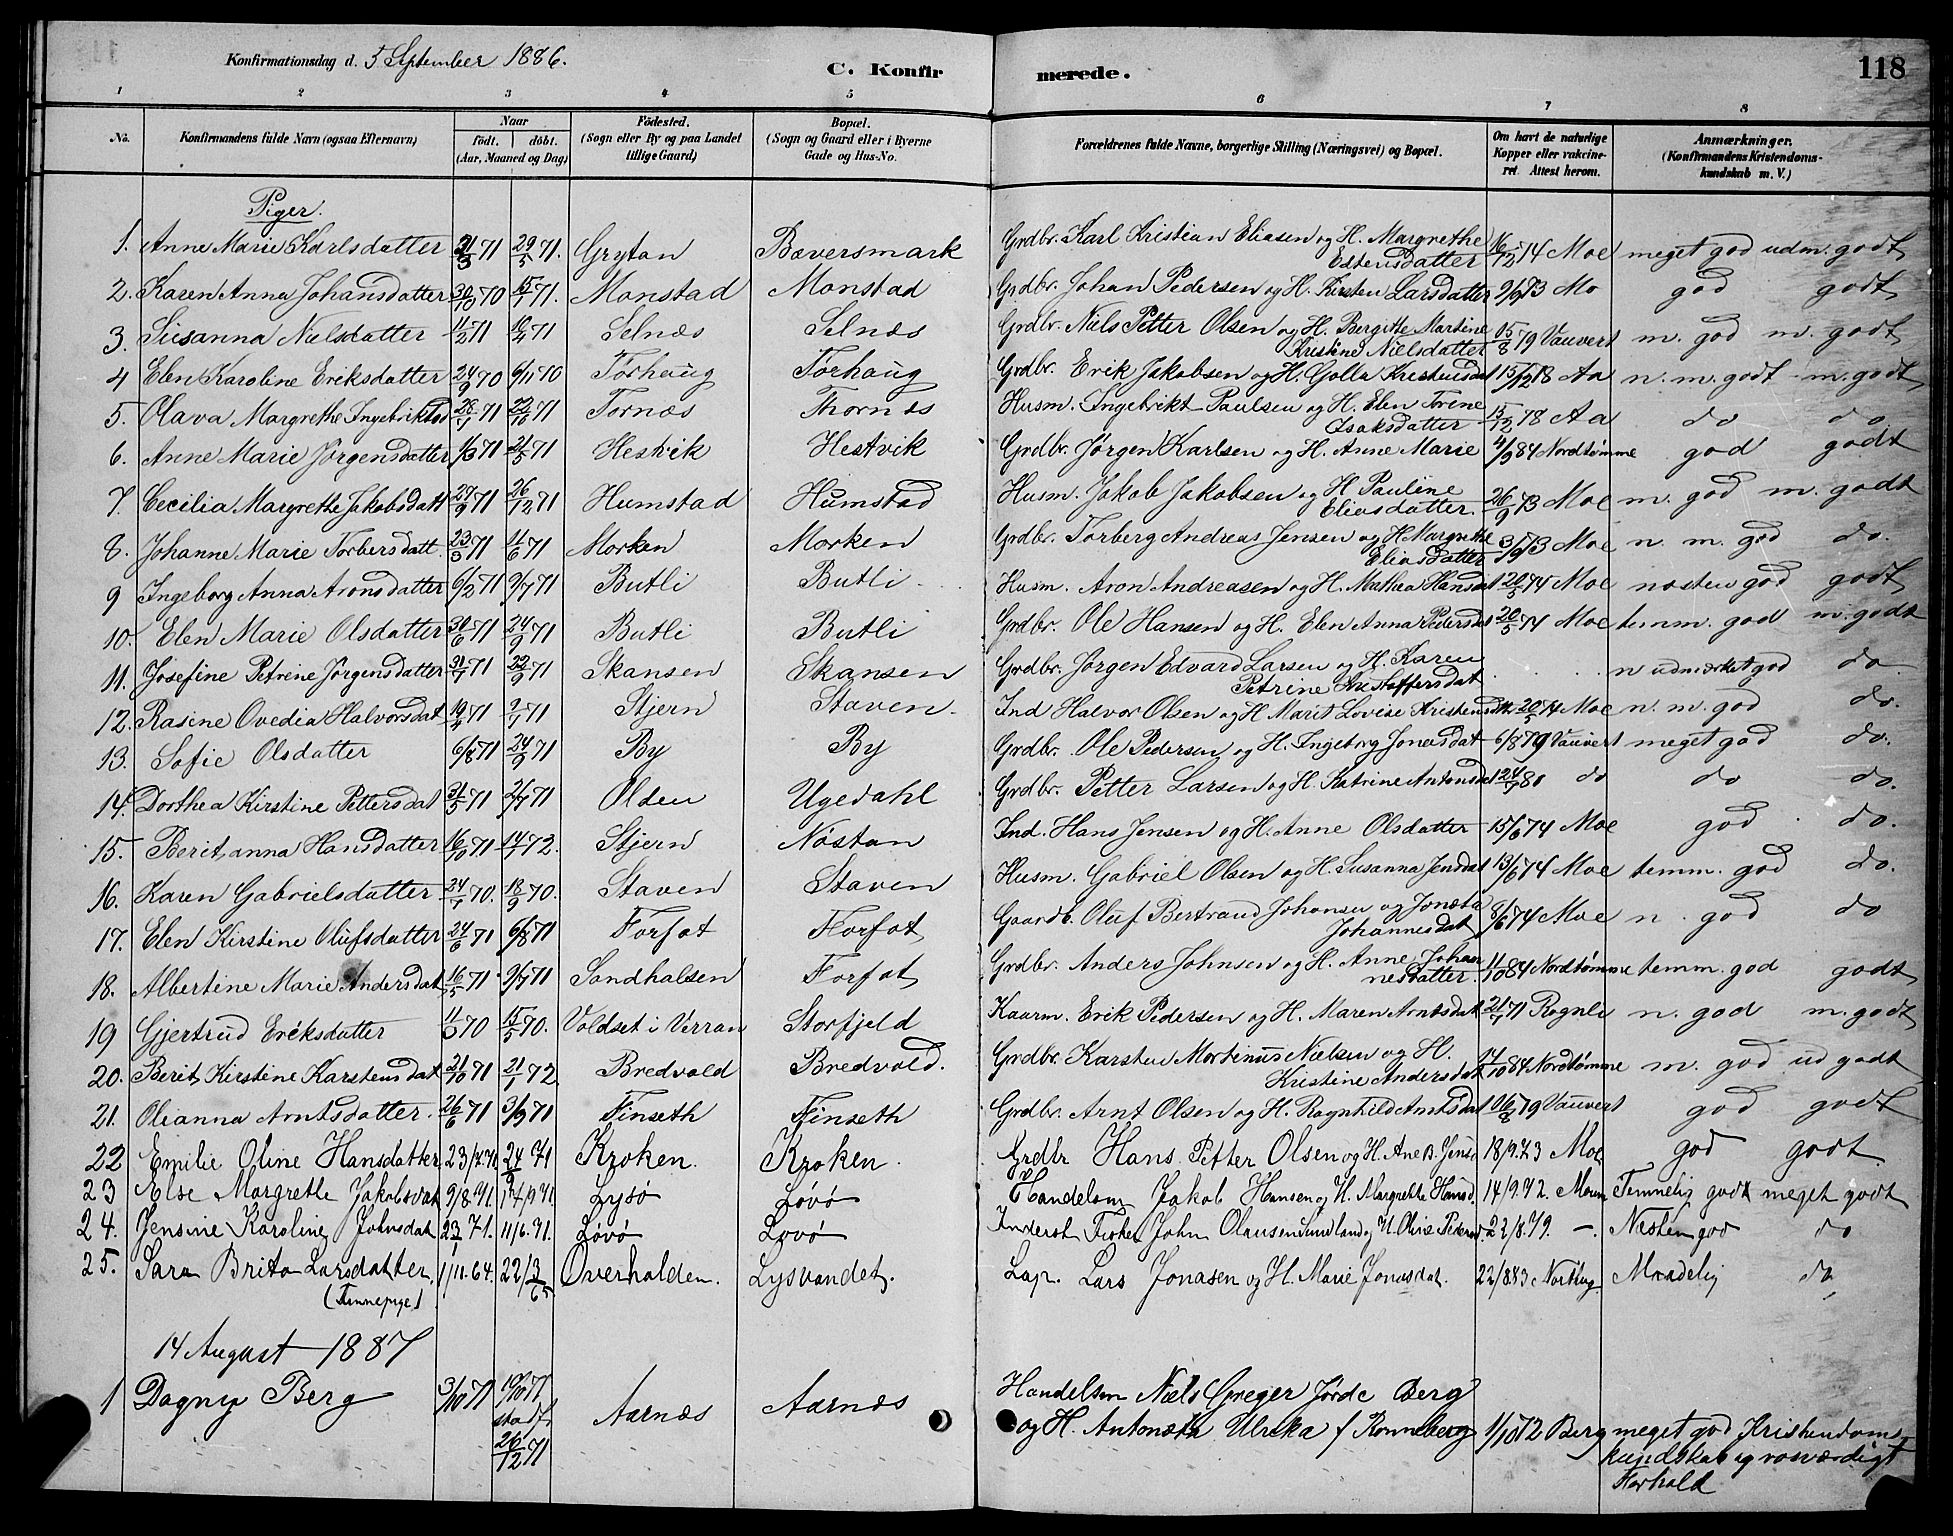 Konfirmationsdag d. 5 September 1886.
C. Konfirmerede.
118
1 2 3 4 5 6 7 8
No. Konfirmandens fulde Navn (ogsaa Efternavn) Naar födt. döbt. (Aar, Maaned og Dag) Födested. (Sogn eller By og paa Landet tillige Gaard) Bopæl. (Sogn og Gaard eller i Byerne Gade og Hus-No. Forældrenes fulde Navne, borgerlige Stilling (Næringsvei) og Bopæl. Om havt de naturlige Kopper eller vakcineret. Attest herom. Anmærkninger. (Konfirmandens Kristendomskundskab m. V.)
Piger.
1. Anne Marie Karlsdatter 21/3 71 29/5 71. Grytan Bæversmark Grdbr. Karl Kristian Eliasen og H. Margrethe Estensdatter 16/12 74 Moe meget god udm. godt
2. Karen Anna Johansdatter 30/10 70 15/1 71. Monstad Monstad Grdbr. Johan Pedersen og H. Kirsten Larsdatter 9/6 73 Mo god godt
3. Susanna Nielsdatter 11/2 71 10/4 71 Selnæs Selnæs Grdbr. Niels Petter Olsen og H. Bergitte Martine Kristine Nielsdatter 15/8 79 Vauvert m. god m. godt
4 Elen Karoline Eriksdatter 24/9 70 6/11 70 Torhaug Torhaug Grdbr. Erik Jakobsen og H. Golla 15/12 78 Aa n. m. godt m. godt
5. Olava Margrethe 26/1 71 71 Tornæs Thornæs Husm. Ingebrikt Paulsen og H. Elen Trene Isaksdatter 15/12 78 Aa do do
6. Anne Marie Jørgensdatter 1/3 71 21/5 71 Hestvik Hestvik Grdbr. Jørgen Karlsen og H. Anne Marie 4/9 84 Nordtømme god godt
7. Cecilia Margrethe Jakobsdatt 27/9 71 26/12 71 Humstad Humstad Husm. Jakob Jakobsen og H. Pauline Eliasdatter. 26/9 73 Moe m. god m. godt
8. Johanne Marie Torbersdatt. 23/3 71 11/6 71 Morken Morken Grdbr. Torberg Andreas Jensen og H. Margrethe Eliasdatter 73 Moe n. m. god do.
9 Ingeborg Anna Aronsdatter 6/2 71 9/7 71 Butli Butli Husm. Aron Andreasen og H. Mathea Hansdat 20/5 74 Moe næsten god godt
10. Elen Marie Olsdatter 30/6 71 24/9 71 Butli Butli Grdbr. Ole Hansen og H. Elen Anna Pedersdat 20/5 74 Moe temm. god m. godt
11. Josefine Petrine Jørgensdatter 71 71 Skansen Skansen Grdbr. Jørgen Edvard Larsen og H. Karen Petrine n udmærket god do
12. Rasine Ovedia Halvorsdat 19/4 71 71 Stjern Staven Ind Halvor Olsen og H Marit Lovise 20/5 74 Moe n. m. god do.
13. Sofie Olsdatter 6/8 71 24/9 71 By By Grdbr. Ole Pedersen og H. Ingeborg Jonasdat 6/8 79 Vauvert meget god do.
14. Dorthea Kirstine Pettersdat 31/5 71 2/7 71 Olden Ugedahl Grdbr. Petter Larsen og H. Katrine 24/7 80 do do do.
15. Beritanna Hansdatter 16/10 71 14/1 72. Stjern Nøstan Ind. Hans Jensen og H. Anne Olsdatter 15/6 74 Moe god do.
16. Karen Gabrielsdatter 24/7 70. 18/9 70. Staven Staven Husm. Gabriel Olsen og H. Susanna Jensdat 13/6 74 Moe temm. god do.
17. Elen Kirstine Olufsdatter 24/6 71 6/8 71 Forfot Forfot Gaardb. Oluf Bertrand Johansen og Jonetta Johannesdat 8/6 74 Moe n. god do
18. Albertine Marie Andersdat 16/5 71 9/7 71 Sandhalsen Forfot Grdbr. Anders Johnsen og H. Anne Johannesdatter. 11/10 84 Nordtømme temm. god godt
19 Gjertrud Eriksdatter 70 15/5 70. Voldset i Verran Storfjeld Kaarm. Erik Pedersen og H. Maren Arntsdat 21/7 71 Rognli n. god m. godt
20. Berit Kirstine Karstensdat 21/10 71 21/1 72 Bredvold Bredvold. Grdbr. Karsten Martinus Nielsen og H. Kristine Andersdat 17/10 84 Nordtømme m. god ud godt
21. Olianna Arntsdatter. 26/6 71 3/9 71 Finseth Finseth Grdbr. Arnt Olsen og H. Ragnhild Arntsdat 79 Vauvert god godt
22 Emilie Oline Hansdatter 23/7.71 24/9 71 Kroken. Kroken. Grdbr Hans Petter Olsen og H. Ane B. Jensd 18/9.73 Moe god godt
23 Else Margrethe Jakobsdat 9/8.71. 24/9 71. Lysø Løvø Handelsm Jakob Hansen og H. Margrethe Hansd. 14/9.72. Temmelig godt meget godt
24. Jensine Karoline Johnsdat 23/1 71. 11/6.71. Løvø Løvø Inderst Fisker John Olausen Sundland og H. Olive 22/8.79. — Næsten god do
25. Sara Brita Larsdatter, 1/11.64. 22/3/65 Overhalden. Lysvandet. Lap. Lars Jonasen og H. Marie Jonasdat. 22/8 83 Maadelig do
(Finnepige)
14 August 1887
1 Dagny Berg 3/10 71 19/10 71 stadf. 26/12 71 Aarnæs Aarnæs Handelsm Niels Greger Jørde Berg
og H. Antonetta Ulrika f Rønneberg 1/10 72 Berg meget god Kristendoms
kundskab og rosværdigt
Forhold